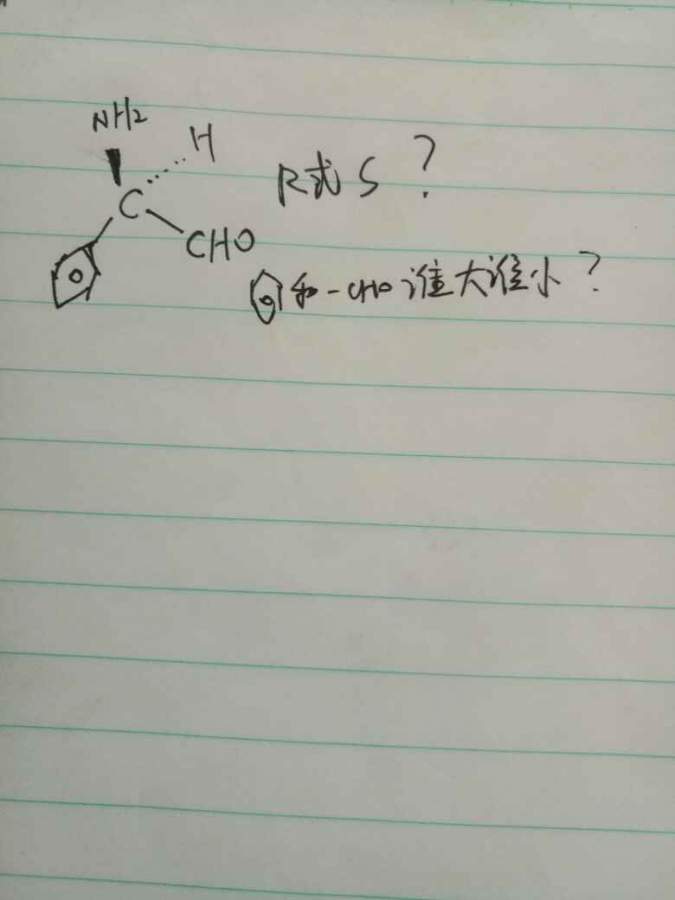 NH2
H
C
CHO
R或S?
和-CHO谁大谁小?